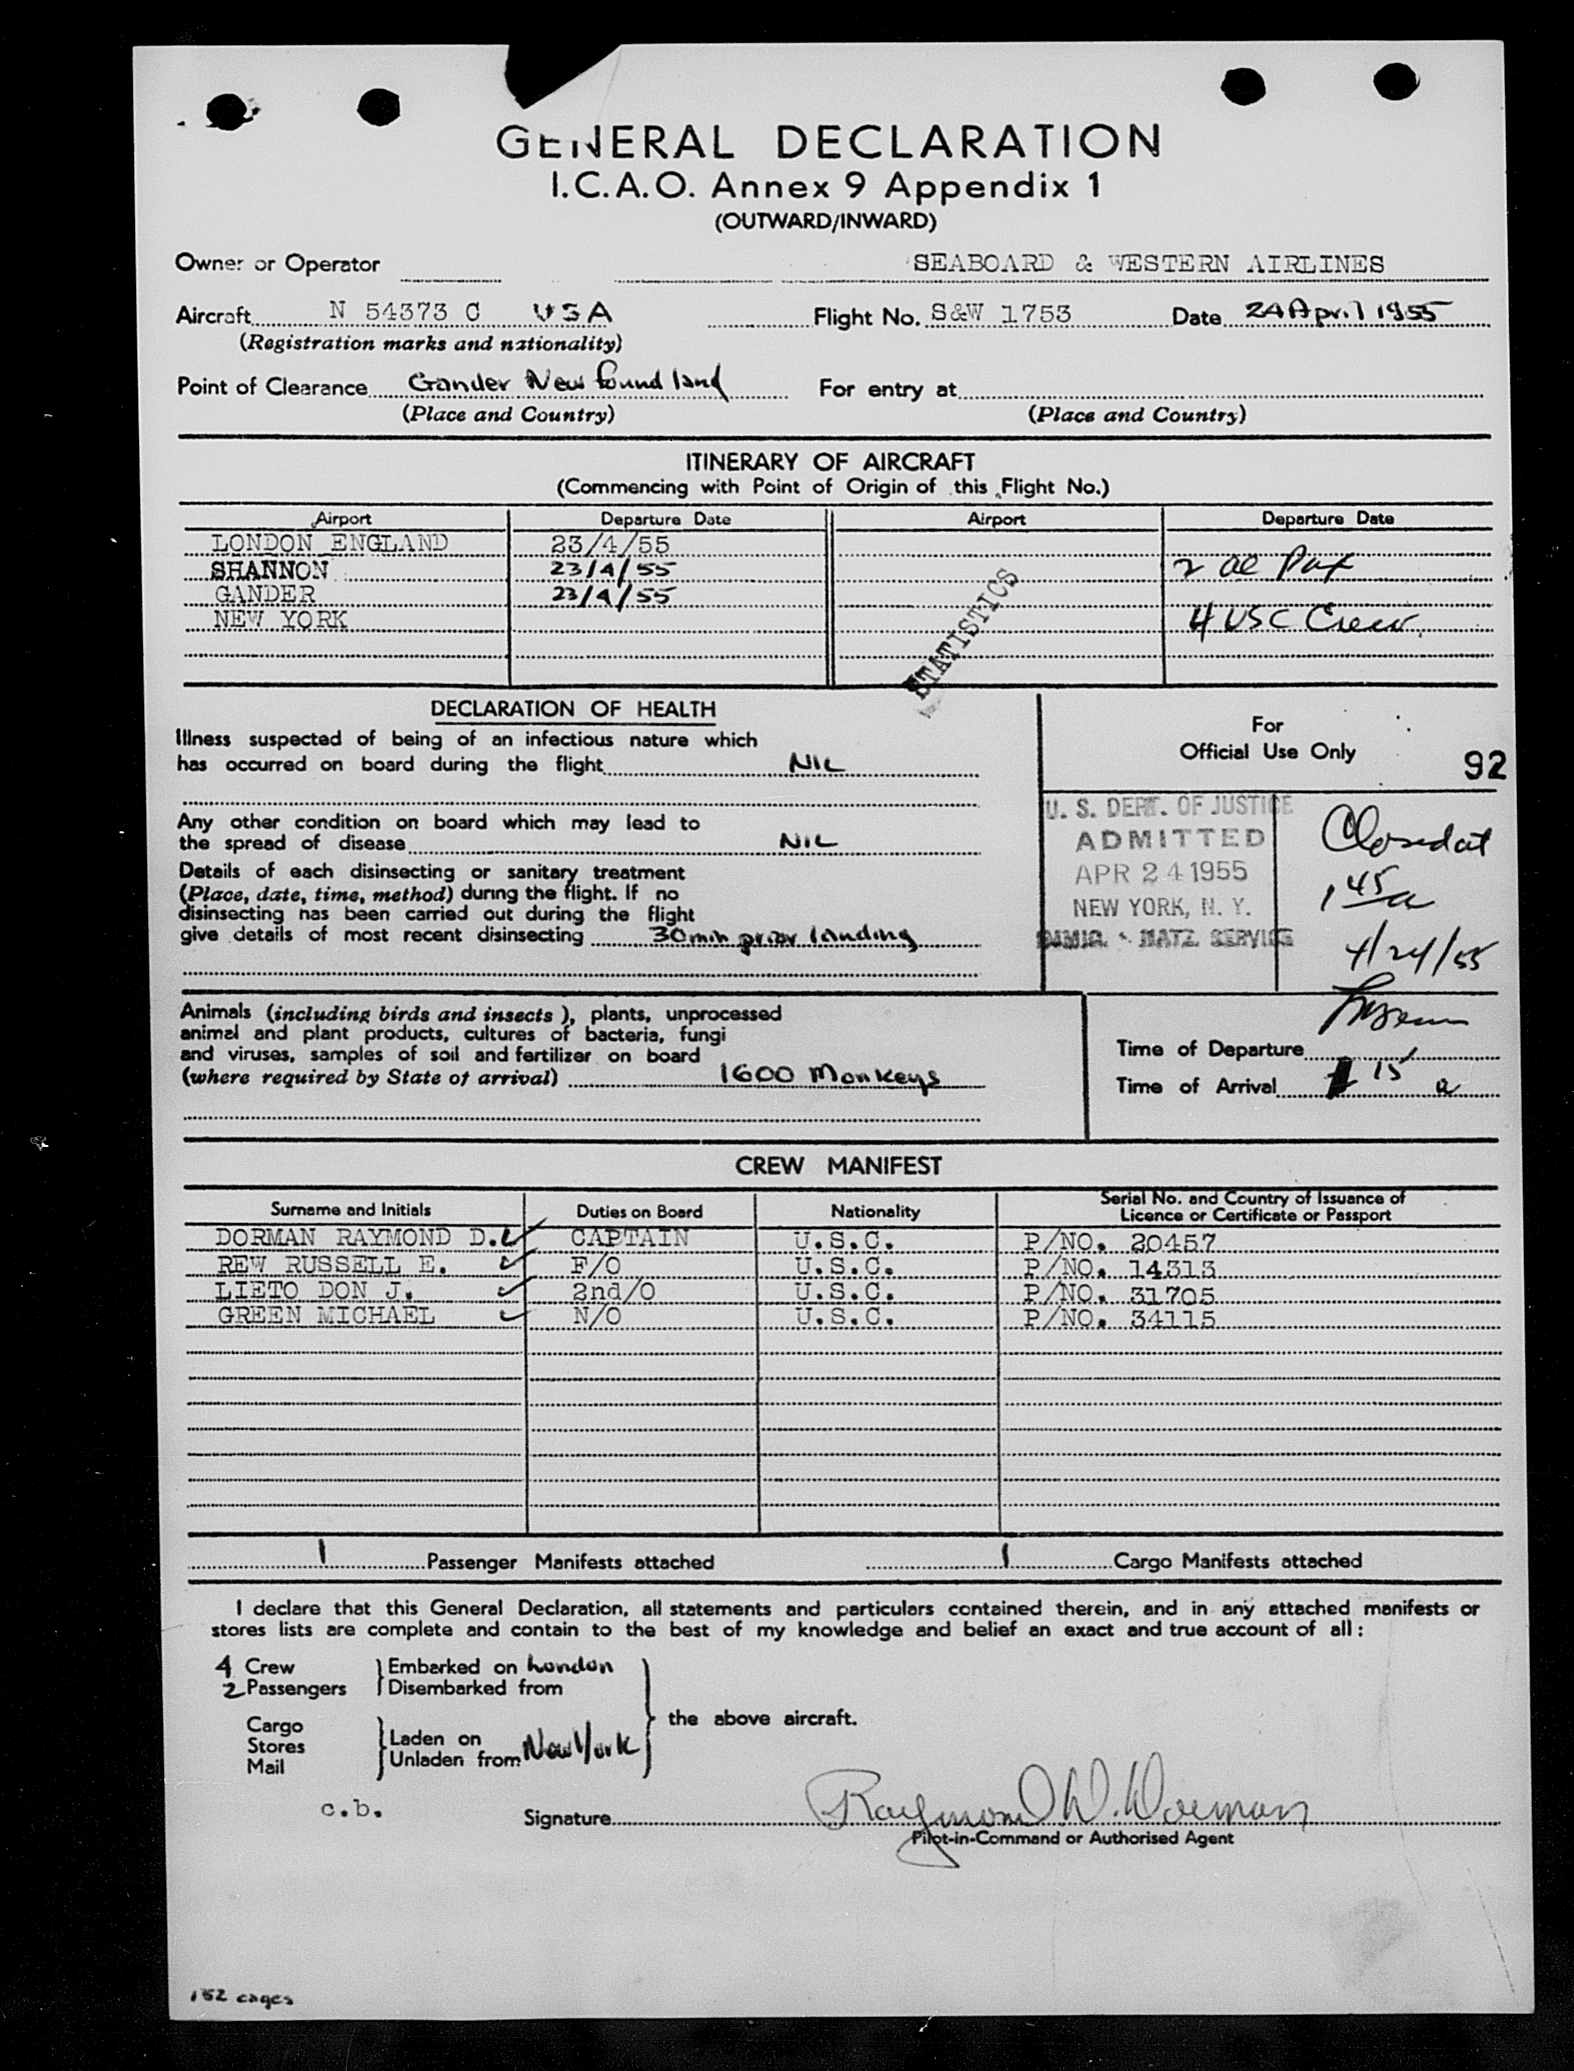 GENERAL DECLARATION
I.C.A.O. Annex 9 Appendix 1
(OUTWARD/INWARD)
Owner or Operator SEABOARD & WESTERN AIRLINES
Aircraft N 54373 C USA Flight No. S&W 1753 Date 24 April 1955
(Registration marks and nationality)
Point of Clearance Gander Newfoundland For entry at
(Place and Country) (Place and Country)
ITINERARY OF AIRCRAFT
(Commencing with Point of Origin of this Flight No.)
Airport Departure Date Airport Departure Date
LONDON ENGLAND 23/4/55
SHANNON 23/4/55 2 al Pax
GANDER 23/4/55
NEW YORK 4 USC Crew
STATISTICS
DECLARATION OF HEALTH
Illness suspected of being of an infectious nature which
has occurred on board during the flight NIL
Any other condition on board which may lead to
the spread of disease NIL
Details of each disinsecting or sanitary treatment
(Place, date, time, method) during the flight. If no
disinsecting has been carried out during the flight
give details of most recent disinsecting 30 min prior landing
For
Official Use Only
92
U. S. DEPT. OF JUSTICE
ADMITTED
APR 24 1955
NEW YORK, N. Y.
IMMIG. & NATZ. SERVICE
Closed at
1 45 a
4/24/55
Animals (including birds and insects), plants, unprocessed
animal and plant products, cultures of bacteria, fungi
and viruses, samples of soil and fertilizer on board
(where required by State of arrival) 1600 Monkeys
Time of Departure
Time of Arrival 15 a
CREW MANIFEST
Surname and Initials Duties on Board Nationality Serial No. and Country of Issuance of
Licence or Certificate or Passport
DORMAN RAYMOND D. CAPTAIN U.S.C. P/NO. 20457
REW RUSSELL E. F/O U.S.C. P/NO. 14313
LIETO DON J. 2nd/O U.S.C. P/NO. 31705
GREEN MICHAEL N/O U.S.C. P/NO. 34115
1 Passenger Manifests attached 1 Cargo Manifests attached
I declare that this General Declaration, all statements and particulars contained therein, and in any attached manifests or
stores lists are complete and contain to the best of my knowledge and belief an exact and true account of all:
4 Crew Embarked on London
2 Passengers Disembarked from
the above aircraft.
Cargo
Stores Laden on
Mail Unladen from New York
c.b.
Signature Raymond W. Dorman
Pilot-in-Command or Authorised Agent
152 cages